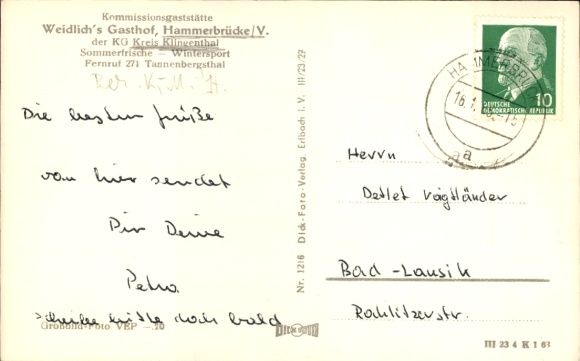 Kommissionsgaststätte
Weidlich's Gasthof, Hammerbrücke/V.
der KG Kreis Klingenthal
Sommerfrische — Wintersport
Fernruf 271 Tannenbergsthal
Ber. K.M.H.
Die besten Grüße
von hier sendet
Dir Deine
Petra
schreibe bitte doch bald
Großbild-Foto VEP —.20
Nr. 1216 Dick-Foto-Verlag, Erlbach i. V. III/23/29
DICK
HAMMERBRÜ
16.1.
DEUTSCHE
DEMOKRATISCHE REPUBLIK
10
aa
Herrn
Detlef Voigtländer
Bad-Lausik
Rochlitzerstr.
III 23 4 K 1 63